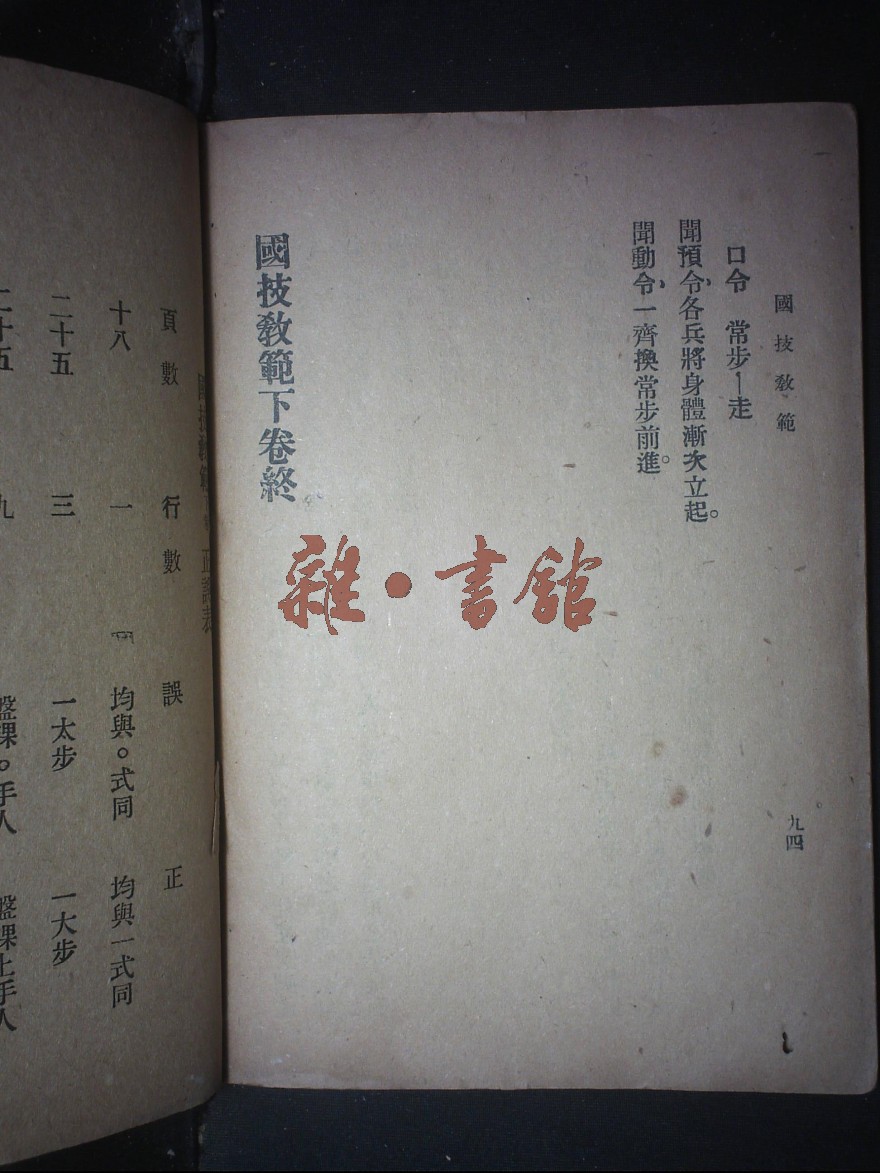 國技教範
九四
口令　常步—走
聞預令、各兵將身體漸次立起。
聞動令、一齊換常步前進。
國技教範下卷終
雜·書館
頁數　行數　誤　正
十八　一　均與。式同　均與一式同
二十五　三　一太步　一大步
二十五　九